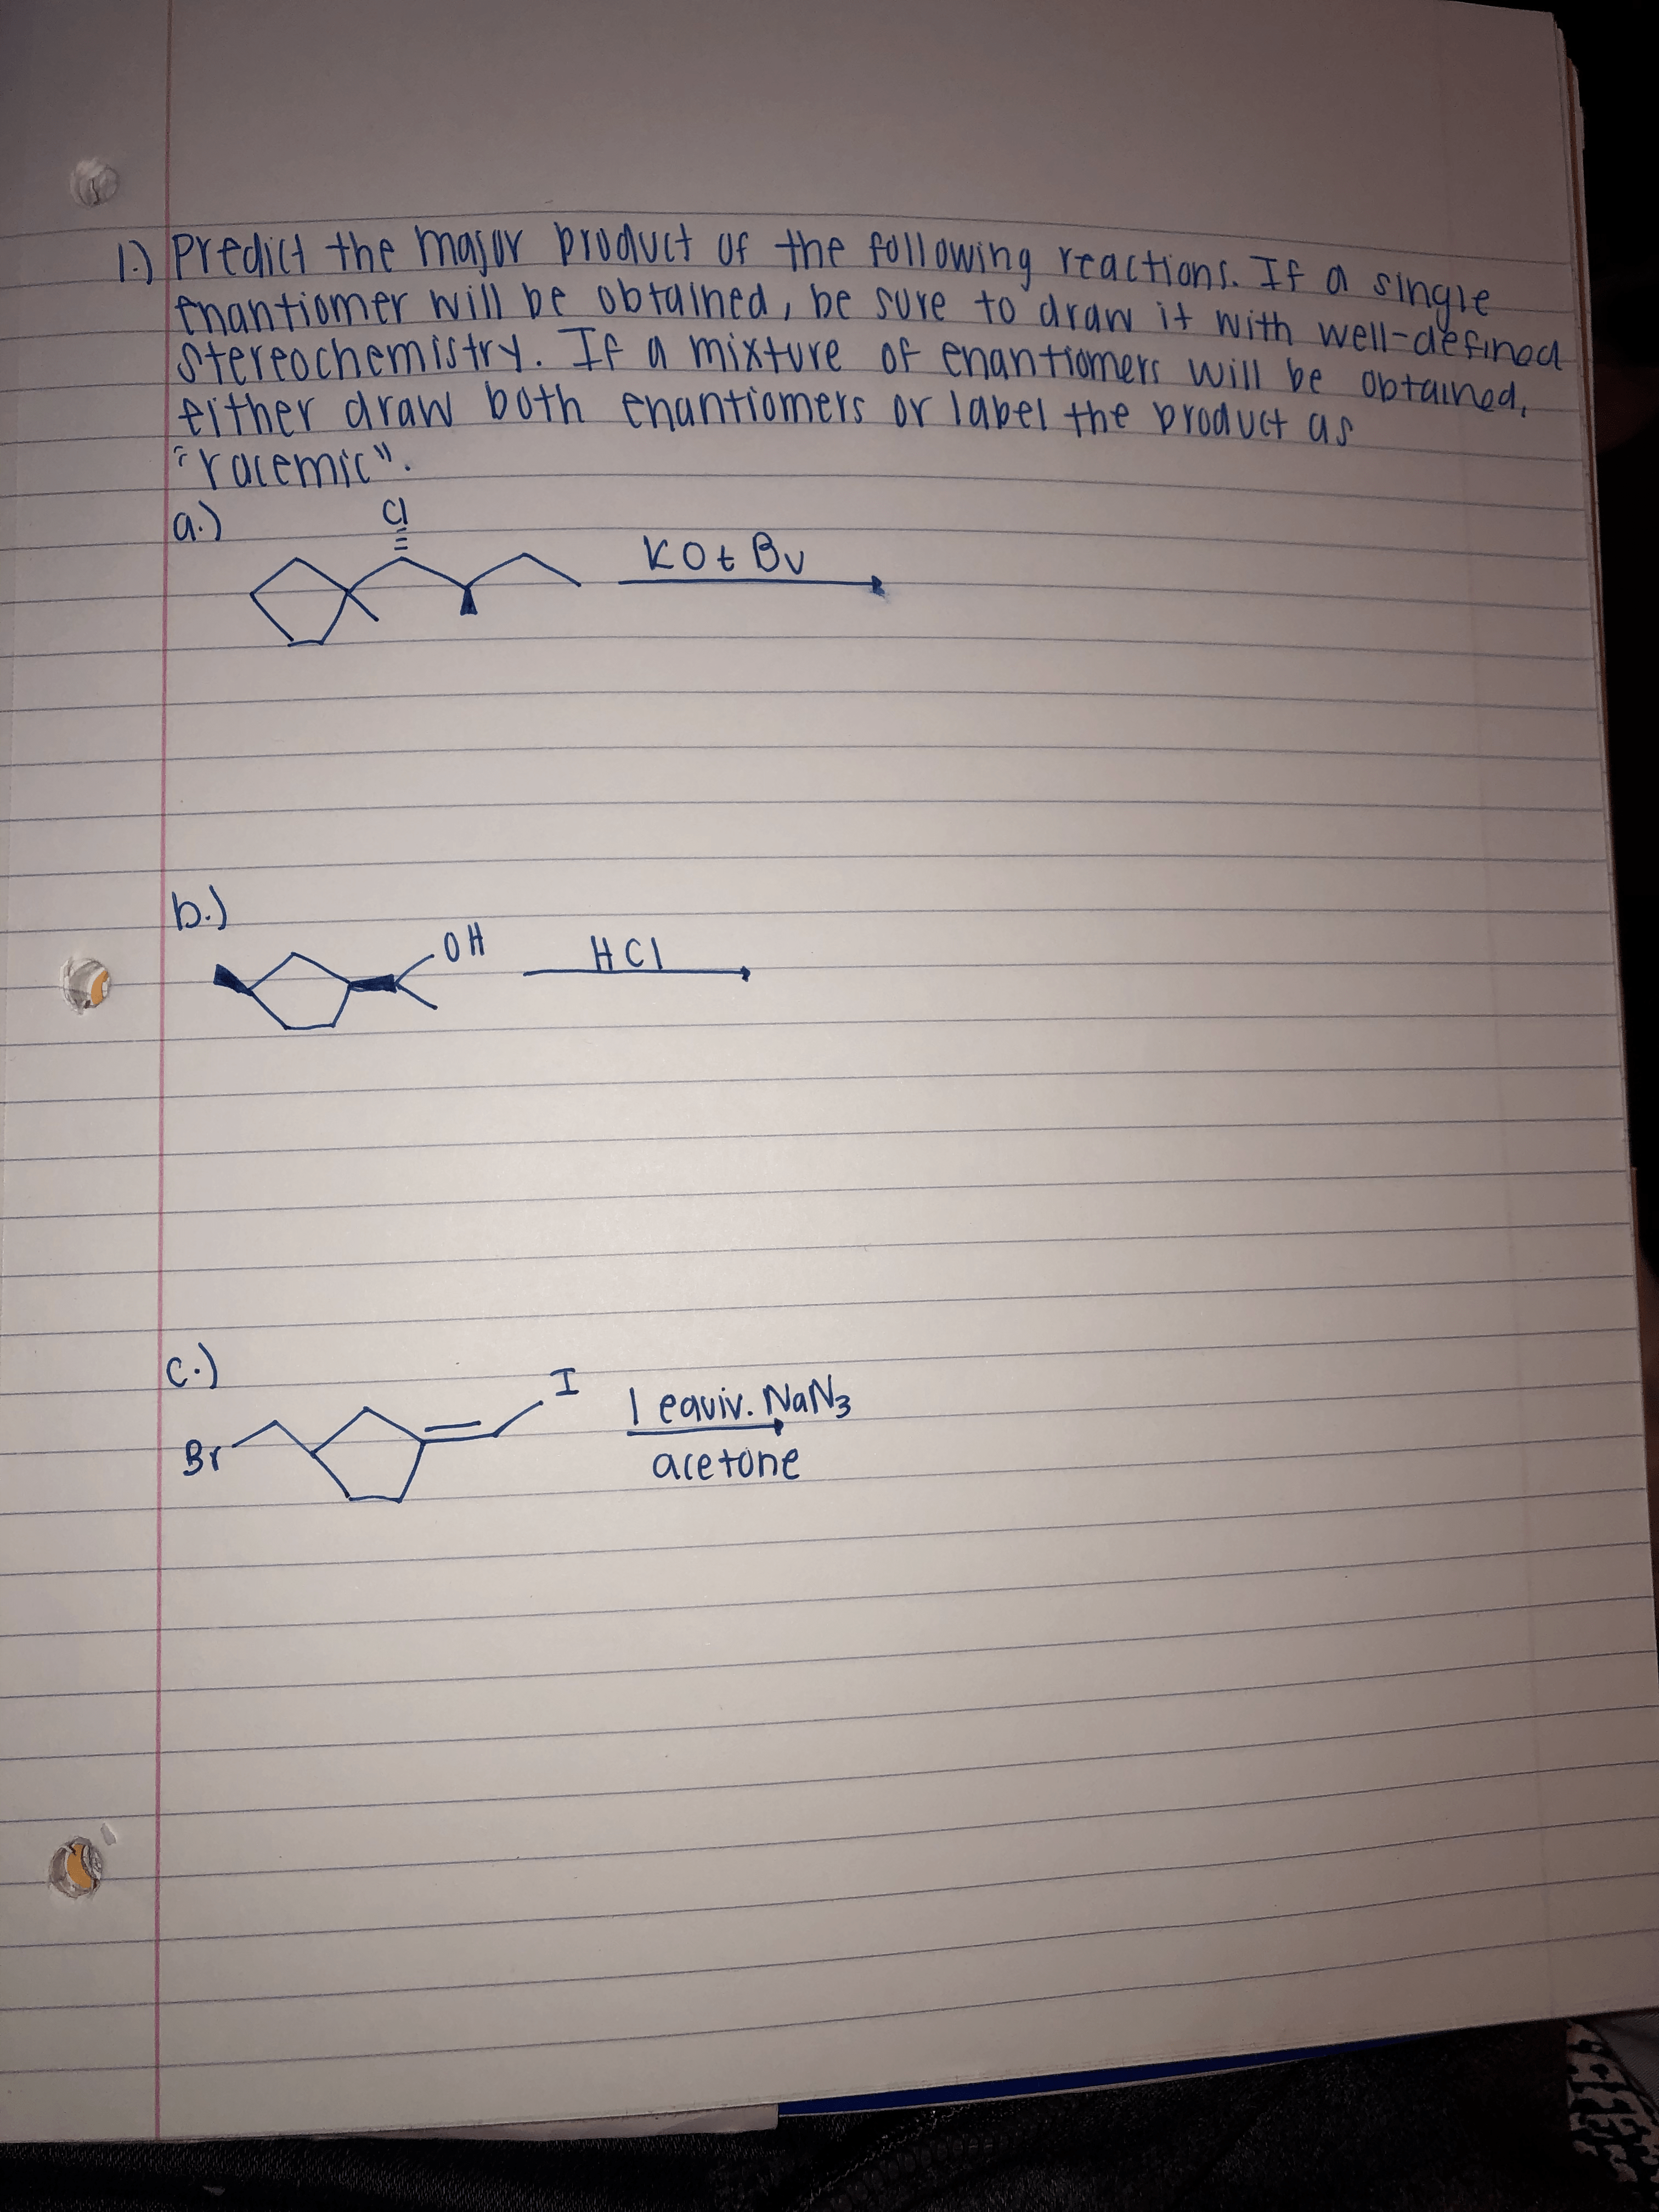 1.) Predict the major product of the following reactions. If a single
enantiomer will be obtained, be sure to draw it with well-defined
stereochemistry. If a mixture of enantiomers will be obtained,
either draw both enantiomers or label the product as
"racemic".
a.)
Cl
KOtBu
b.)
OH
HCl
c.)
I
Br
1 equiv. NaN3
acetone